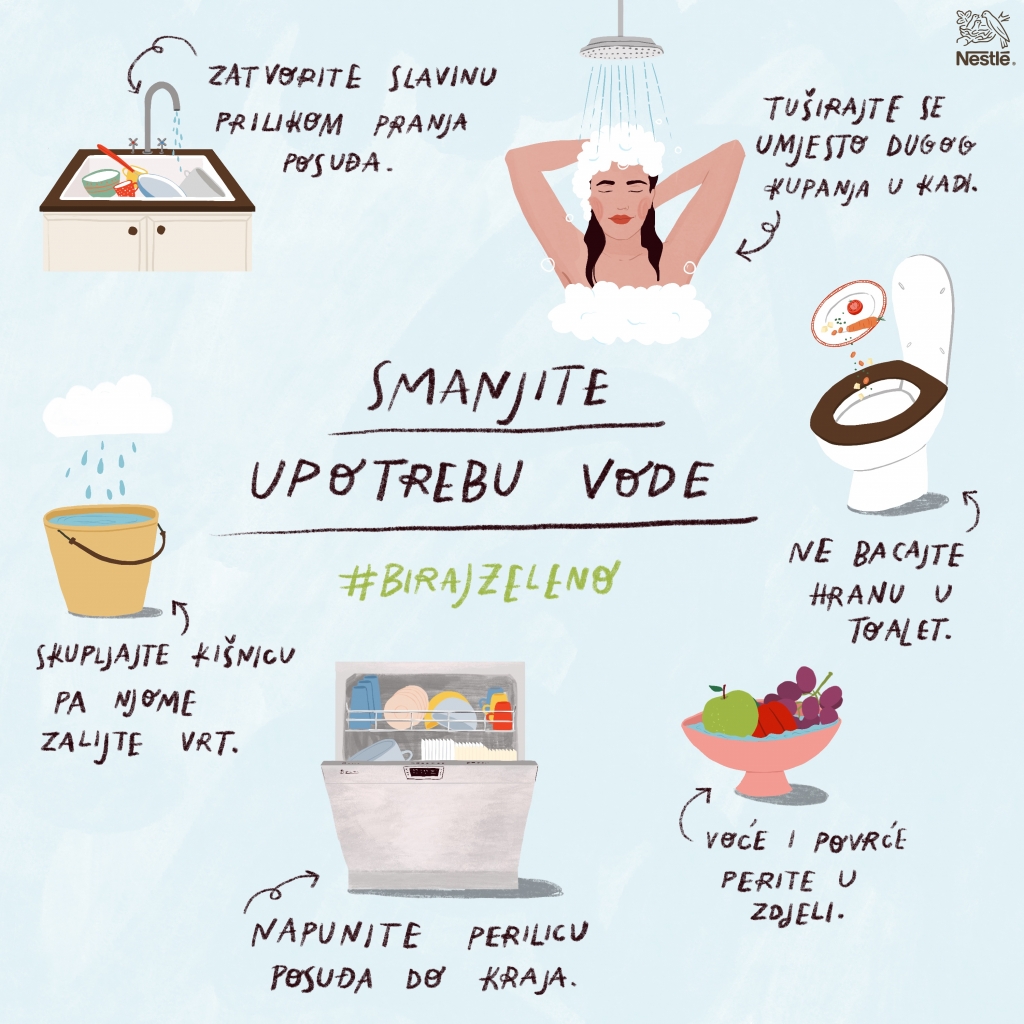 Nestlé®
ZATVORITE SLAVINU
PRILIKOM PRANJA
POSUĐA.
TUŠIRAJTE SE
UMJESTO DUGOG
KUPANJA U KADI.
SMANJITE
UPOTREBU VODE
#BIRAJZELENO
NE BACAJTE
HRANU U
TOALET.
SKUPLJAJTE KIŠNICU
PA NJOME
ZALIJTE VRT.
VOĆE I POVRĆE
PERITE U
ZDJELI.
NAPUNITE PERILICU
POSUĐA DO KRAJA.